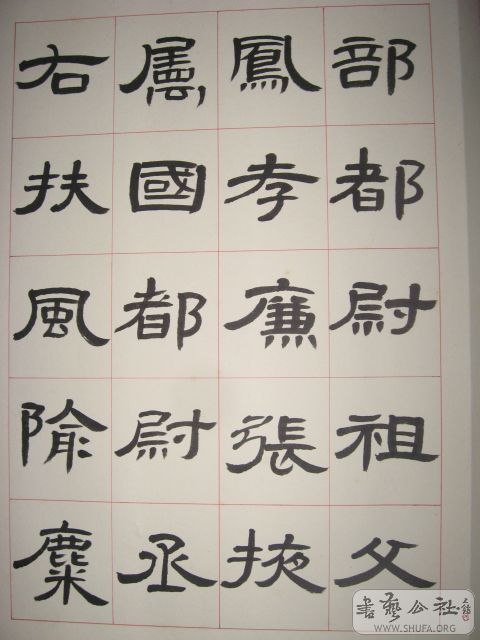 部都尉祖父
鳳孝廉張掖
屬國都尉丞
右扶風隃麋
書藝公社
WWW.SHUFA.ORG